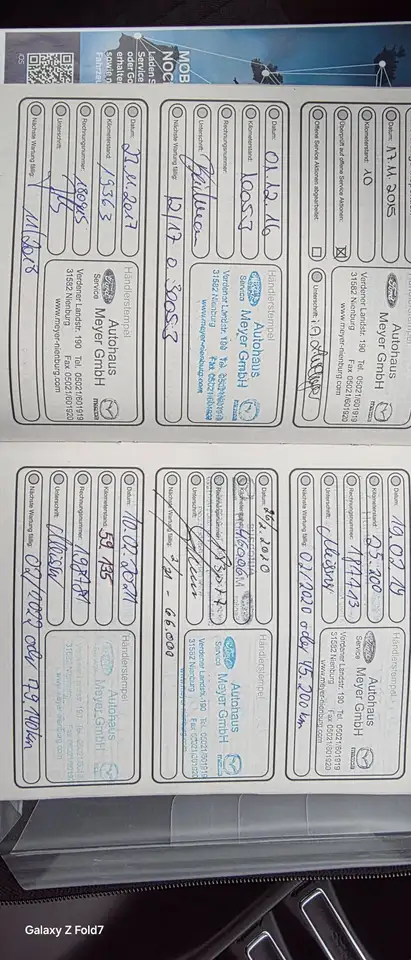 MOB
NOC
Laden S
Service
oder Go
erhalten
sowie d
Fahrze
iOS
Datum: 17.11.2015
Kilometerstand: 10
Überprüft auf offene Service Aktionen: ☒
Offene Service Aktionen abgearbeitet: ☐
Unterschrift:
Händlerstempel
Ford
Service
Autohaus
Meyer GmbH
mazda
Verdener Landstr. 190 Tel. 05021/601919
31582 Nienburg Fax 05021/601920
www.meyer-nienburg.com
Datum: 01.12.16
Kilometerstand: 10053
Rechnungsnummer:
Unterschrift:
Nächste Wartung fällig: 12/17 o 30053
Händlerstempel
Ford
Service
Autohaus
Meyer GmbH
mazda
Verdener Landstr. 190 Tel. 05021/601919
31582 Nienburg Fax 05021/601920
www.meyer-nienburg.com
Datum: 22.11.2017
Kilometerstand: 19363
Rechnungsnummer:
Unterschrift:
Nächste Wartung fällig: 11/2018
Händlerstempel
Ford
Service
Autohaus
Meyer GmbH
mazda
Verdener Landstr. 190 Tel. 05021/601919
31582 Nienburg Fax 05021/601920
www.meyer-nienburg.com
Datum: 19.02.19
Kilometerstand: 25.200
Rechnungsnummer:
Unterschrift:
Nächste Wartung fällig: 02/2020 oder 45.200km
Händlerstempel
Ford
Service
Autohaus
Meyer GmbH
mazda
Verdener Landstr. 190 Tel. 05021/601919
31582 Nienburg Fax 05021/601920
www.meyer-nienburg.com
Datum: 26.2.2020
Kilometerstand:
Rechnungsnummer:
Unterschrift:
Nächste Wartung fällig: 2/21 - 66.000
Händlerstempel
Ford
Service
Autohaus
Meyer GmbH
Verdener Landstr. 190 Tel. 05021/601919
31582 Nienburg Fax 05021/601920
www.meyer-nienburg.com
Datum: 10.02.2021
Kilometerstand: 59 135
Rechnungsnummer:
Unterschrift:
Nächste Wartung fällig: 02/2022 oder 79.140km
Händlerstempel
Autohaus
Meyer GmbH
Galaxy Z Fold7